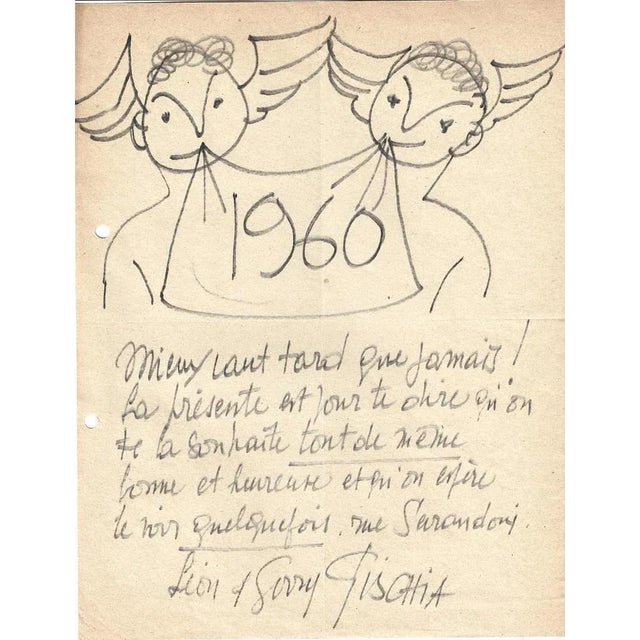 1960
Mieux vaut tard que jamais !
La présente est pour te dire qu'on
te la souhaite tout de même
bonne et heureuse et qu'on espère
te voir quelquefois. rue Servandoni.
Léon & GISCHIA